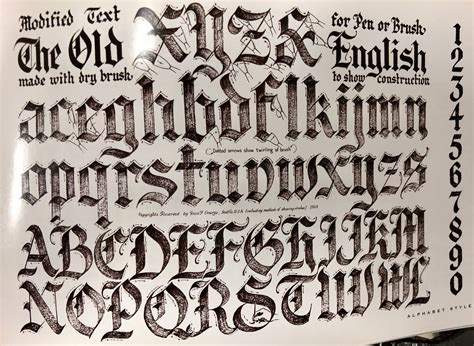 Modified Text
The Old
made with dry brush
XYZ&
for Pen or Brush
English
to show construction
aceghbdflkijmn
Dotted arrows show twirling of brush
opqrstuvwxyzs
Copyrights Reserved by Ross F. George, Seattle, U.S.A. (including method of showing strokes)
ABCDEFGHIJKM
NOPQRSTUVWL
1
2
3
4
5
6
7
8
9
0
ALPHABET STYLE